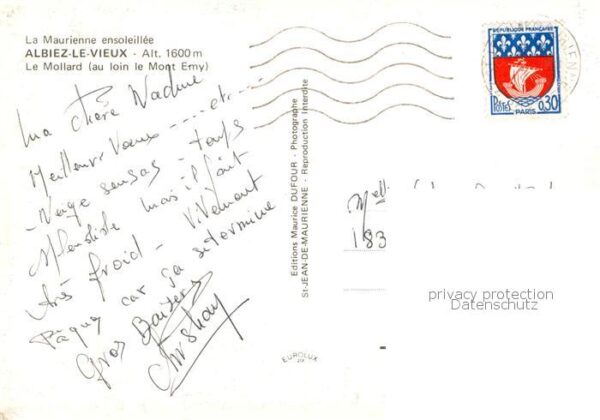 La Maurienne ensoleillée
ALBIEZ-LE-VIEUX - Alt. 1600 m
Le Mollard (au loin le Mont Emy)
Ma chère Nadine
Meilleurs Voeux ---- et ---
- Neige sensas - temps
splendide mais il fait
très froid - Vivement
Pâques car ça se termine
Gros Baisers
Editions Maurice DUFOUR - Photographe
St-JEAN-DE-MAURIENNE - Reproduction interdite
EUROLUX
REPUBLIQUE FRANÇAISE
POSTES 0,30
PARIS
Melle
183
privacy protection
Datenschutz